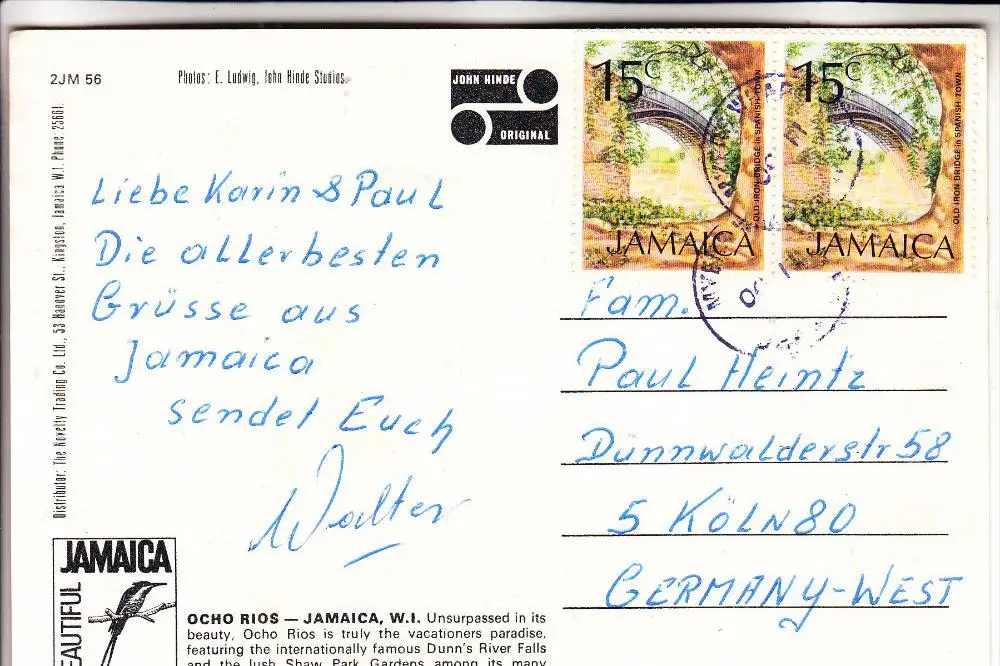 2JM 56
Photos: E. Ludwig, John Hinde Studios.
JOHN HINDE
ORIGINAL
Distributor: The Novelty Trading Co. Ltd., 53 Hanover St., Kingston, Jamaica W.I. Phone: 25661.
Liebe Karin & Paul
Die allerbesten
Grüsse aus
Jamaica
sendet Euch
Walter
JAMAICA
BEAUTIFUL
OCHO RIOS — JAMAICA, W.I. Unsurpassed in its
beauty, Ocho Rios is truly the vacationers paradise,
featuring the internationally famous Dunn's River Falls
and the lush Shaw Park Gardens among its many
15c
OLD IRON BRIDGE in SPANISH TOWN
JAMAICA
15c
OLD IRON BRIDGE in SPANISH TOWN
JAMAICA
Fam.
Paul Heintz
Dünnwalderstr 58
5 KÖLN 80
GERMANY-WEST